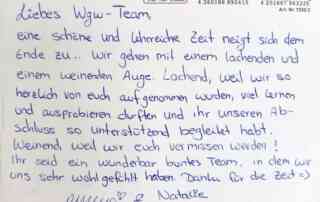 Liebes Wgw-Team
eine schöne und lehrreiche Zeit neigt sich dem
Ende zu.. Wir gehen mit einem lachenden und
einem weinenden Auge. Lachend, weil wir so
herzlich von euch aufgenommen wurden, viel lernen
und ausprobieren durften und ihr unseren Ab-
schluss so unterstützend begleitet habt.
Weinend weil wir euch vermissen werden!
Ihr seid ein wunderbar buntes Team, in dem wir
uns sehr wohlgefühlt haben. Danke für die Zeit =)
& Natascha